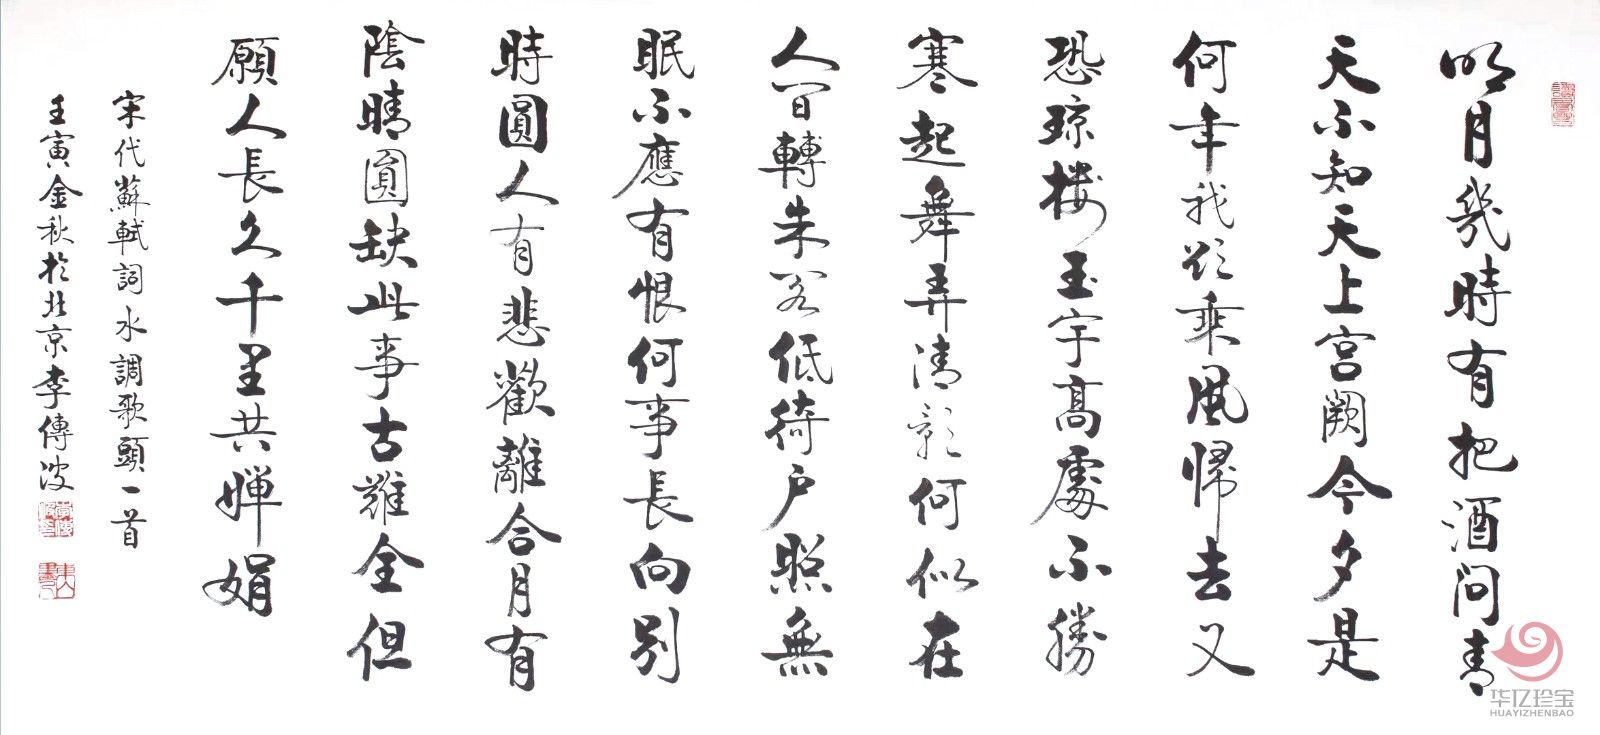 明月幾時有把酒問青
天不知天上宮闕今夕是
何年我欲乘風歸去又
恐琼楼玉宇高處不勝
寒起舞弄清影何似在
人間轉朱閣低綺戶照無
眠不應有恨何事長向別
時圓人有悲歡離合月有
陰晴圓缺此事古難全但
願人長久千里共嬋娟
宋代蘇軾詞水調歌頭一首
壬寅金秋於北京李傳波
华亿珍宝
HUAYIZHENBAO